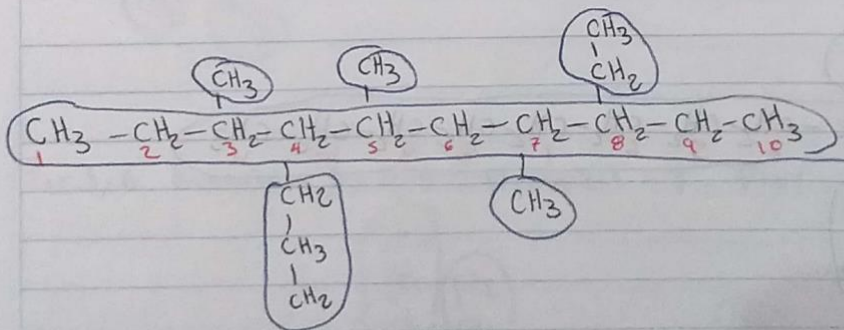 CH3
CH3 CH3 CH2
CH3 - CH2 - CH2 - CH2 - CH2 - CH2 - CH2 - CH2 - CH2 - CH3
1 2 3 4 5 6 7 8 9 10
CH2 CH3
CH3
CH2